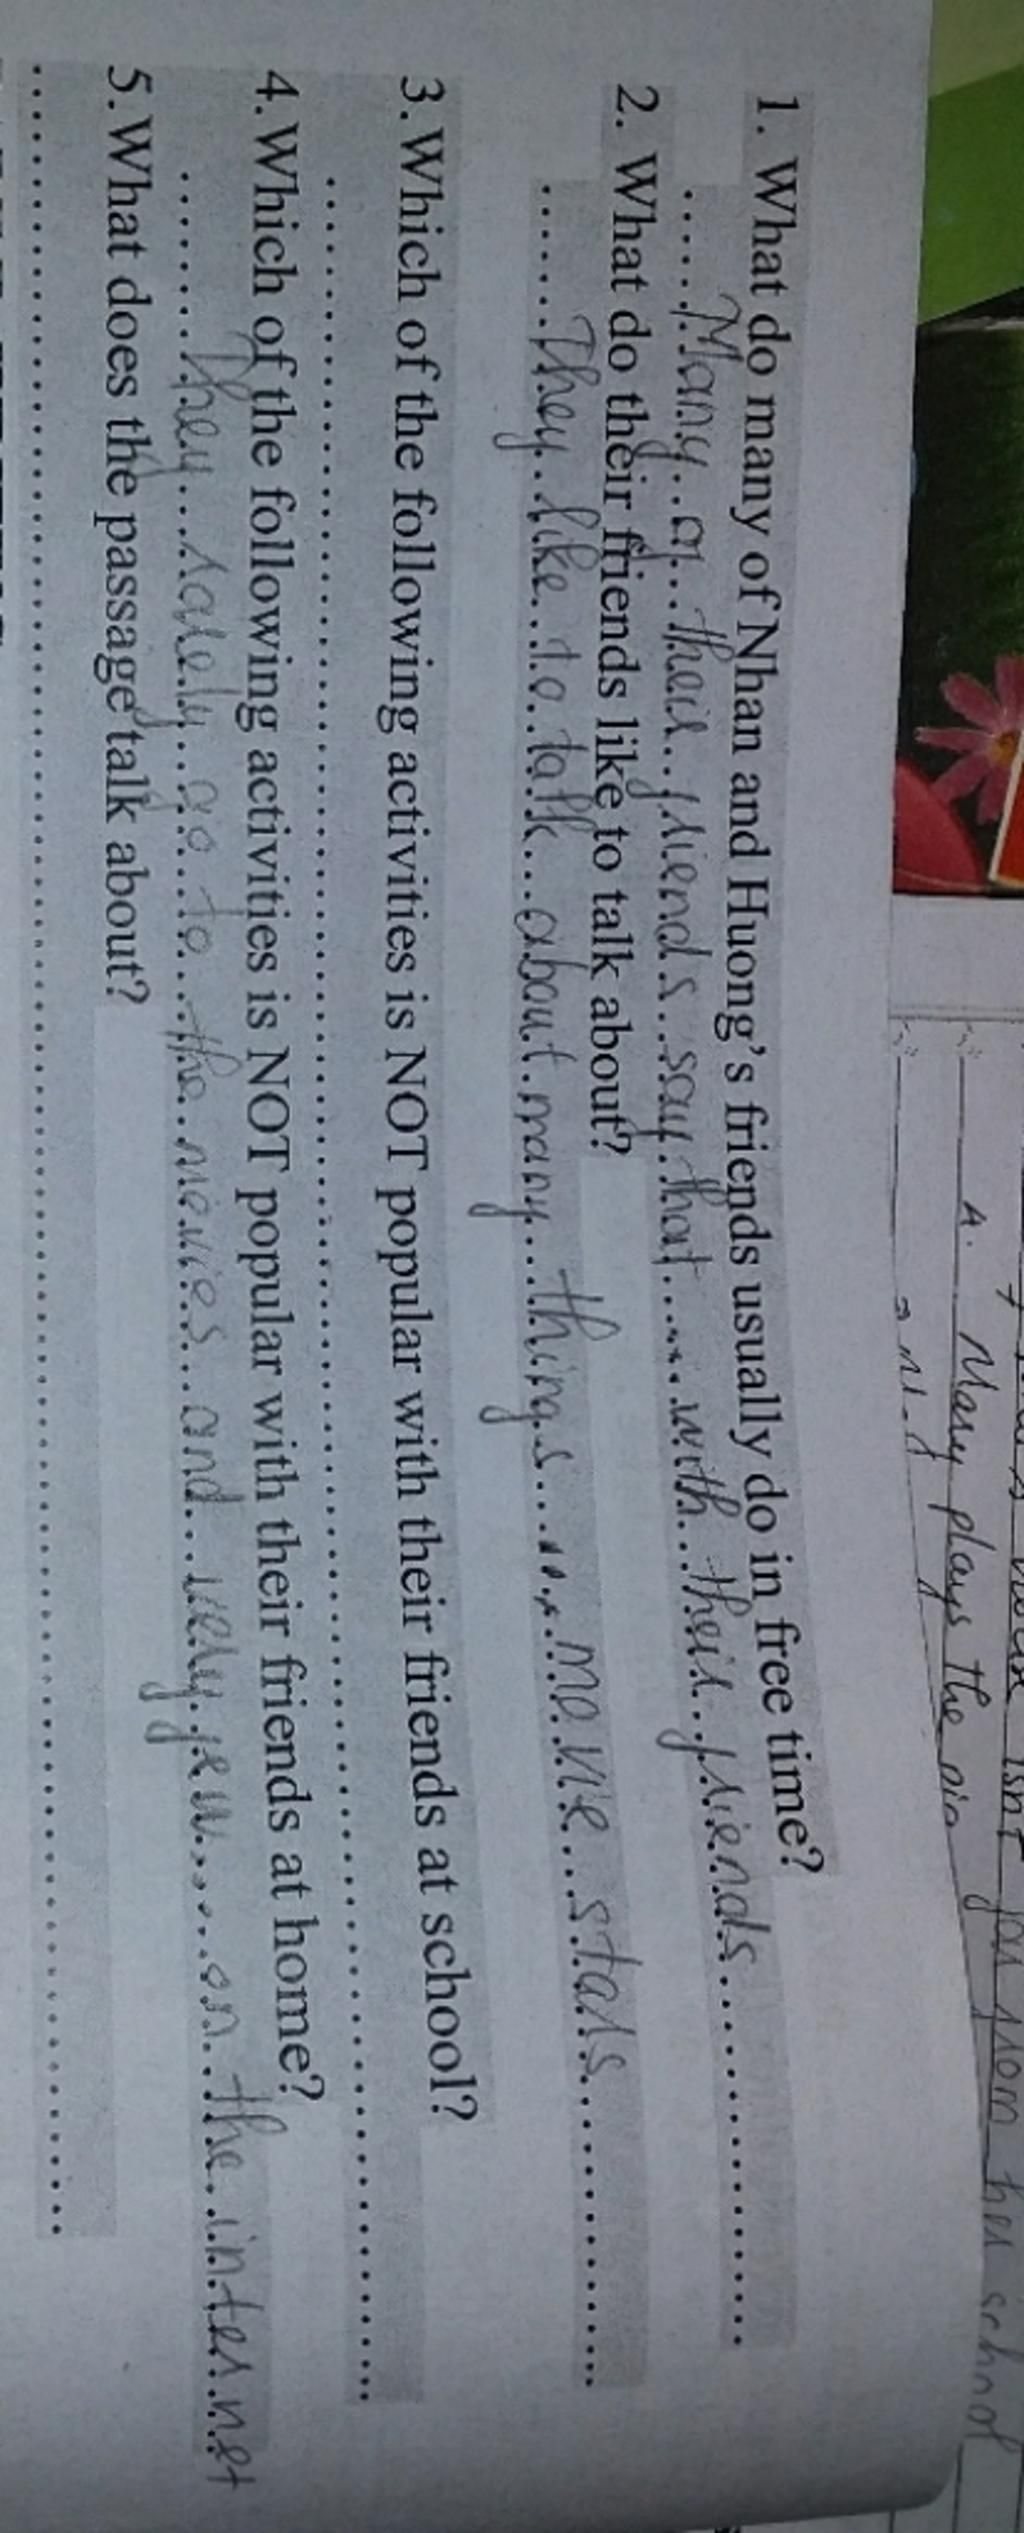 A. Mary plays the pia
1. What do many of Nhan and Huong's friends usually do in free time?
.....Many..of..their..friends..say.that........with...their..friends..................
2. What do their friends like to talk about?
.......They..like..to..talk...about.many...things........movie...stars..................
3. Which of the following activities is NOT popular with their friends at school?
................................................................................
4. Which of the following activities is NOT popular with their friends at home?
........they...rarely..go..to...the..movies...and...very.few......on..the..internet
5. What does the passage talk about?
................................................................................